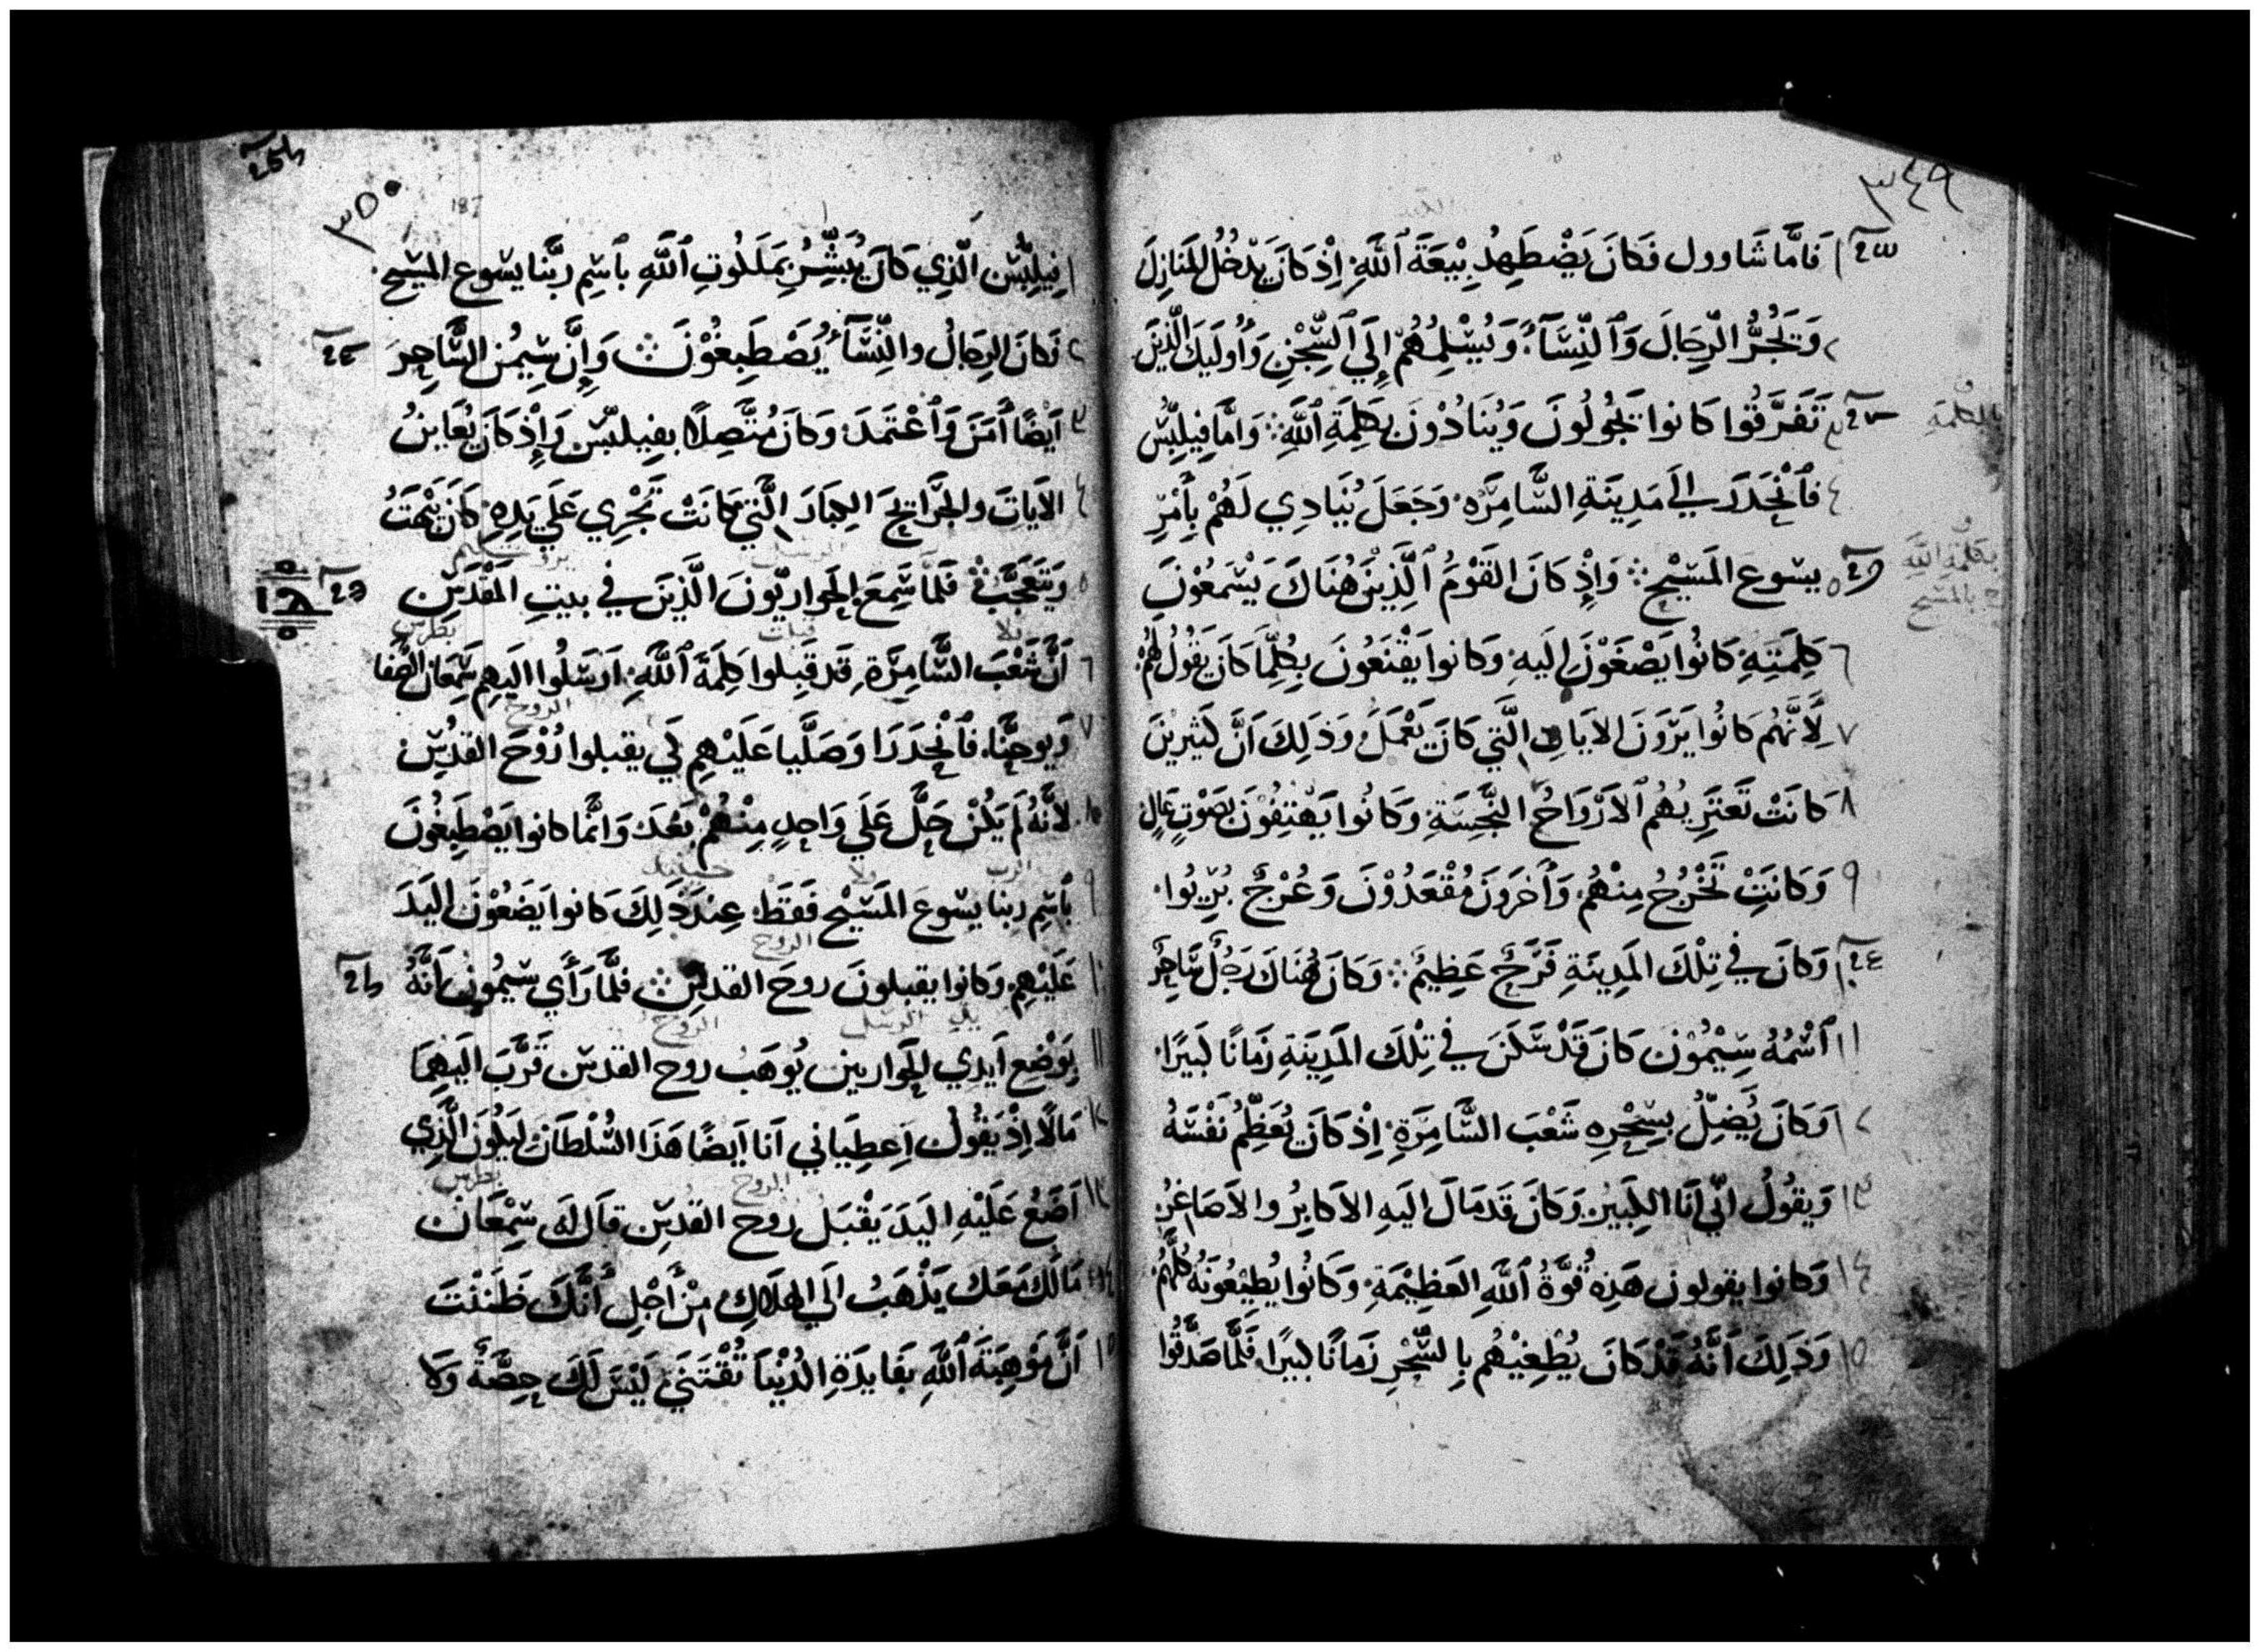 ٣٤٩
١ فَامَّا شَاوول فَكَانَ يَضْطَهِدُ بِيْعَةَ ٱللَّهِ إِذْ كَانَ يَدْخُلُ المَنَازِلَ
٢ وَيَجُرُّ الرِّجَالَ وَٱلنِّسَآءَ وَيُسْلِمُهُمْ إِلَي ٱلسِّجْنِ وَأُولَيِكَ الَّذِينَ
٣ تَفَرَّقُوا كَانوا يَجُولُونَ وَيُنَادُوْنَ بِكَلِمَةِ ٱللَّهِ وَامَّا فِيلِبُّسْ
بالكلمة
٤ فَٱنْحَدَرَ الَي مَدِينَةِ السَّامِرَةِ وَجَعَلَ يُنَادِي لَهُمْ بِأَمْرِ
٥ يسوع المَسِيْحِ وَإِذْ كَانَ القَوْمُ ٱلَّذِيْنَ هُنَاكَ يَسْمَعُوْنَ
بكلمة الله
بالمسيح
٦ كَلِمَتِهِ كَانُوا يَصْغَوْنَ إِلَيهِ وَكانوا يَقْنَعُونَ بِكُلِّمَا كَانَ يَقُولُ لَهُمْ
٧ لِأَنَّهُم كَانُوا يَرَوْنَ الاَيَاتِ الَّتِي كَانَ يَعْمَلُ وَذَلِكَ اَنَّ كَثِيْرِيْنَ
٨ كَانَتْ تَعْتَرِيهُمُ ٱلاَرْوَاحُ النَّجِسَةِ وَكَانُوا يَهْتِفُوْنَ بِصَوْتٍ عَالٍ
٩ وَكَانَتْ تَخْرُجُ مِنْهُمْ وَأَخَرُونَ مُقْعَدُوْنَ وَعُرْجٌ بُرِيُوا
١٠ وَكَانَ فِي تِلْكَ المَدِينَةِ فَرَحٌ عَظِيمٌ وَكَانَ هُنَاكَ رَجُلٌ سَاحِرٌ
١١ ٱسْمُهُ سِيْمُوْن كَانَ قَدْ سَكَنَ فِي تِلْكَ المَدِينَةِ زَمَانًا كَبِيرًا
١٢ وَكَانَ يُضِلُّ بِسِحْرِهِ شَعْبَ السَّامِرَةِ إِذْ كَانَ يُعَظِّمُ نَفْسَهُ
١٣ وَيَقُولُ انِّي اَنَا الكَبِيرُ وَكَانَ قَد مَالَ اليهِ الاَكابِرُ والاَصَاغرُ
١٤ وَكانوا يقولون هَذِهِ قُوَّةُ ٱللَّهِ العَظِيْمَةِ وَكَانُوا يُطِيْعُونَهُ كُلُّهُمْ
١٥ وَذَلِكَ أَنَّهُ قَدْ كَانَ يُطْغِيْهُم بِالسِّحْرِ زَمَانًا كبيرًا فَلَمَّا صَدَّقُوا
٣٥٠
187
١ فِيلِبُّسْ الَّذِي كَانَ يُبَشِّرُ بِمَلَكُوتِ ٱللَّهِ بٱسْمِ ربَّنا يسوع المَسِيح
٢ فَكَانَ الرِجَالُ والنِّسَآءُ يُصْطَبِغُوْنَ وَإِنَّ سِيمُن السَّاحِرَ
٣ اَيْضًا أَمَنَ وَٱعْتَمَدَ وَكَانَ مُتَّصِلًا بفِيلبّس وَإِذْ كَانَ يُعَايِنُ
٤ الاَيَاتَ والجَرَايِحَ الكِبَارَ الَّتِي كَانَتْ تَجْرِي عَلَي يَدِهِ كَانَ يَبْهَتُ
٥ وَيَتَعَجَّبُ فَلَمَا سَمِعَ الحَوارِيّونَ الَّذِينَ فِي بيتِ المَقْدِسِ
٦ اَنَّ شَعْبَ السَّامِرَةِ قَد قَبِلوا كَلِمَةَ ٱللَّهِ اَرسَلُوا اليهِم شِمعَان الصَّفا
٧ وَيوحَنَّا فَٱنْحَدَرَا وَصَلَّيا عَلَيْهِم لِكَي يقبلوا رُوْحَ القدُسِ
٨ لأَنَّهُ لَم يَكُنْ حَلَّ عَلَي وَاحِدٍ مِنْهُمْ بَعْدُ وَانَّما كانوا يَصْطَبِغُونَ
٩ بٱسْمِ ربنا يسوع المَسِيْح فَقَطْ عِنْدَ ذَلِكَ كانوا يَضَعُوْنَ اليَدَ
١٠ عَلَيْهِمْ وَكَانوا يقبلونَ روحَ القدسِ فلمَّا رَأَي سِيمُونُ اَنَّهُ
١١ بِوَضْعِ اَيدي الحَواريين يُوهَبُ روح القدس قَرَّبَ اليهِمَا
١٢ مَالًا إِذْ يَقُولُ اعطِيَاني اَنا اَيضًا هَذَا السُّلْطَان ليَكُونَ الَّذِي
١٣ اَضَعُ عَلَيْهِ اليَدَ يَقْبَل روح القدس قَالَ لَه شِمْعَانُ
١٤ مَالُكَ مَعَكَ يَذْهَبُ الَي الهَلاكِ مِنْ أَجْلِ أَنَّكَ ظَنَنْتَ
١٥ اَنَّ مَوْهِبَةَ ٱللَّهِ بفَايدَةِ الدُنْيَا تُقْتَنَي لَيْسَ لَكَ حِصَّةٌ وَلَا